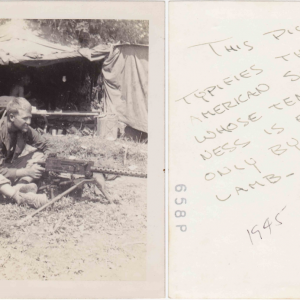 THIS
TYPIFIES
AMERICAN
WHOSE
NESS IS
ONLY BY
LAMB-
1945
658P